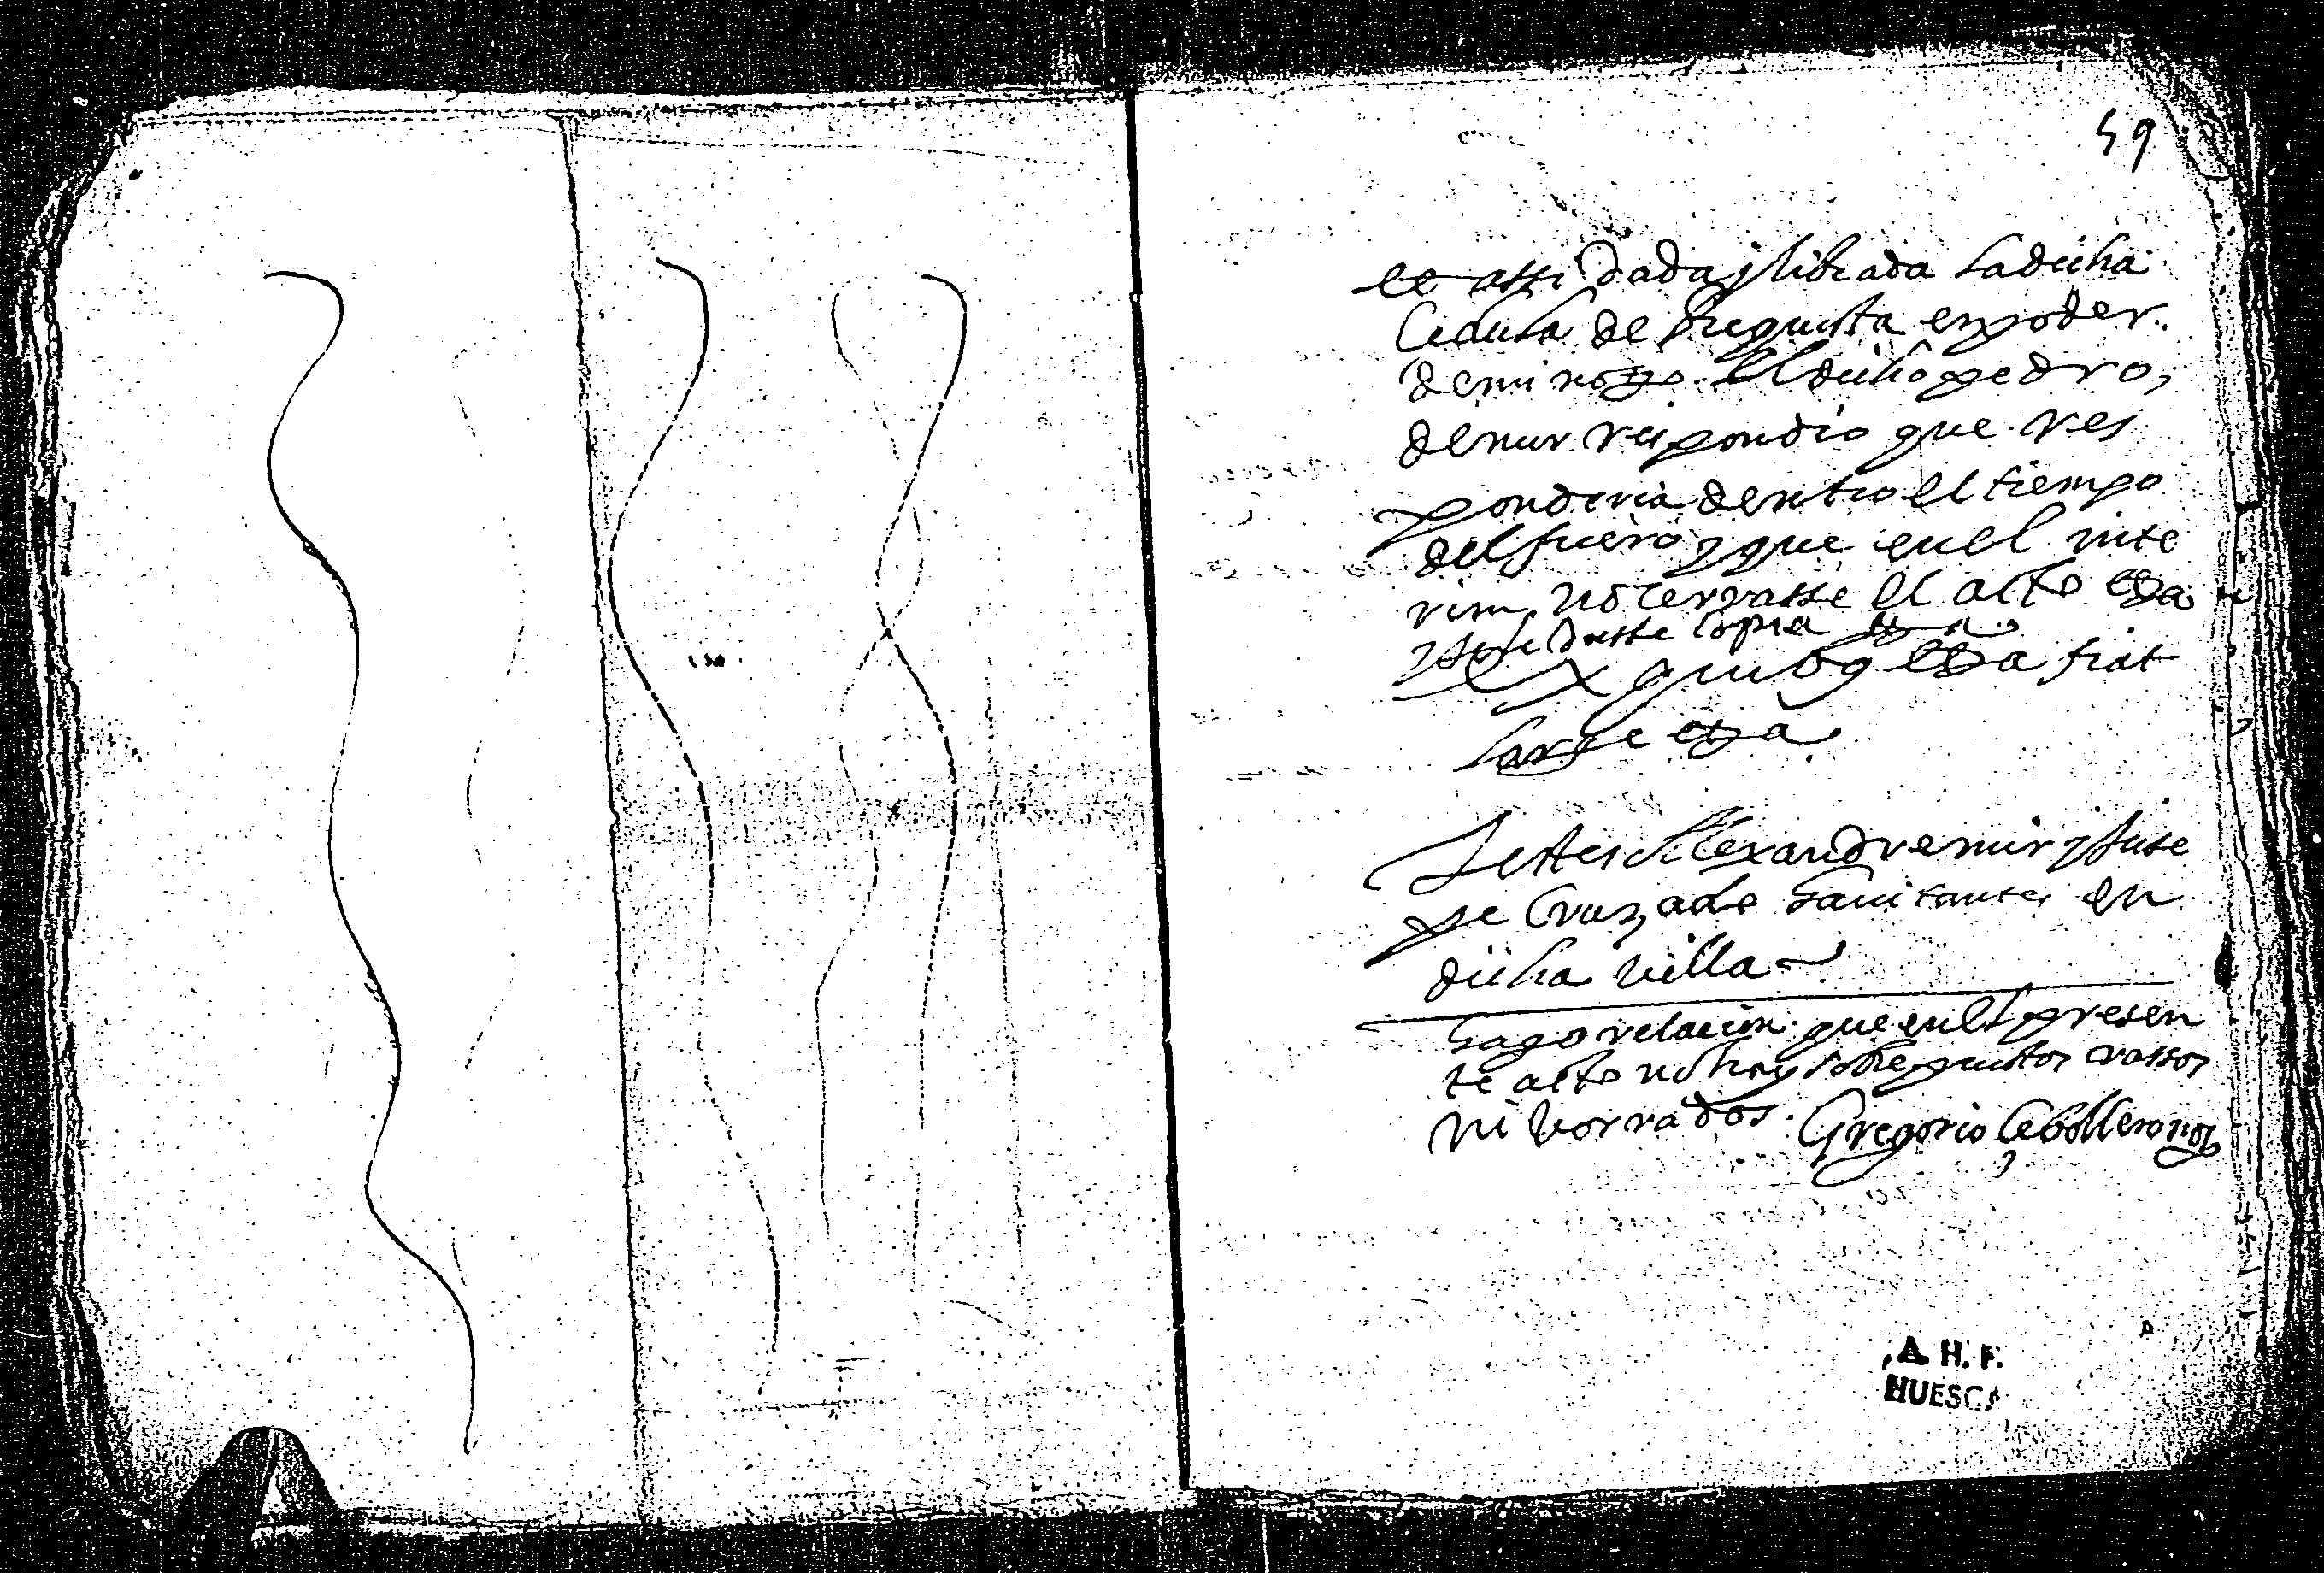 59
et assi dada y librada la dicha
cedula de respuesta en poder
de mi noto. El dicho pedro,
de mur respondio que res
ponderia dentro el tiempo
del fuero y que en el inte
rim no cerrasse el acto
y se le diesse copia
ex quibus fiat
large
Testes Alexandre mur y Juse
pe Cruzado havitantes en
dicha villa
hago relacion que en el presen
te acto no hay sobrepuestos rassos
ni borrados. Gregorio Cebollero not
A. H. P.
HUESCA